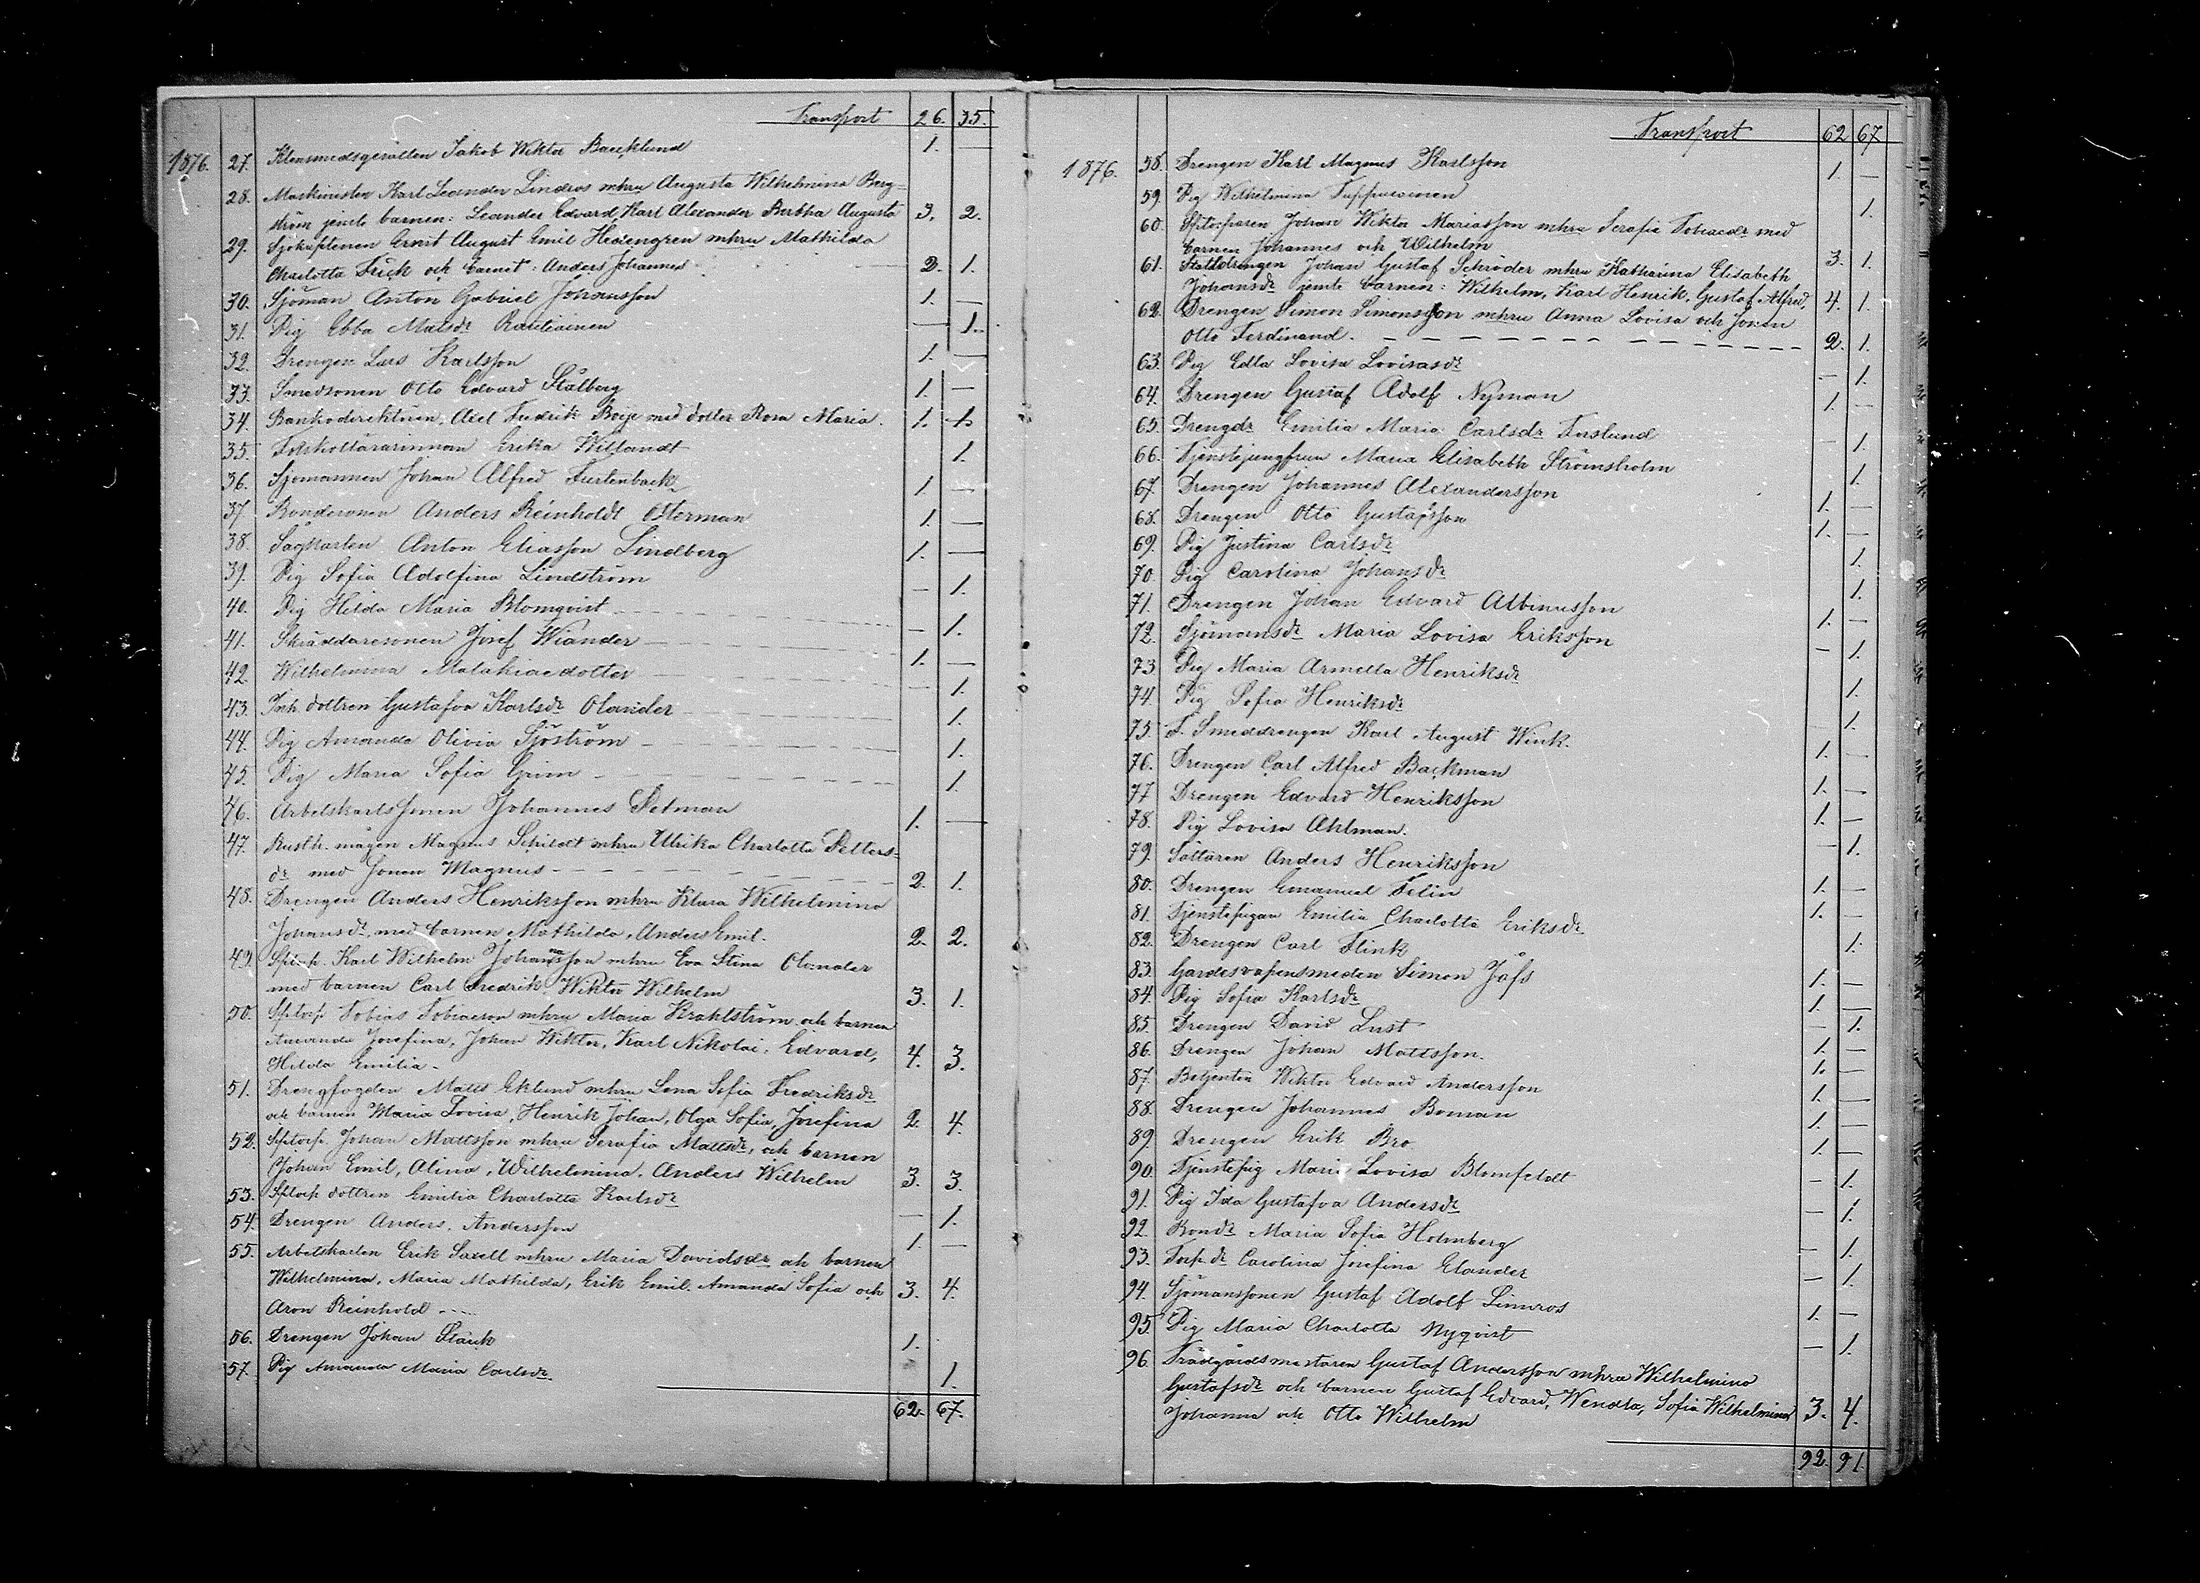 Transport 26. 35.
1876. 27. Klensmedsgesällen Jakob Wiktor Baecklund 1. —
28. Maskinisten Karl Leander Lindros mhru Augusta Wilhelmina Berg-
ström jemte barnen: Leander Edvard Karl Alexander Bertha Augusta 3. 2.
29. Sjökaptenen Ernst August Emil Hedengren mhru Mathilda
Charlotta Frick och barnet: Anders Johannes 2. 1.
30. Sjöman Anton Gabriel Johansson 1. —
31. Pig Ebba Matsdr Rautiainen — 1.
32. Drengen Lars Karlsson 1. —
33. Smedsonen Otto Edvard Stålberg 1. —
34. Bankodirektören, Axel Fredrik Boije med dotter Rosa Maria. 1. 1.
35. Folkskollärarinnan Erika Willandt 1.
36. Sjömannen Johan Alfred Furtenback 1. —
37. Bondesonen Anders Reinholdt Österman 1. —
38. Sågkarlen Anton Eliasson Lindberg 1. —
39. Pig Sofia Adolfina Lindström — 1.
40. Pig Hilda Maria Blomqvist — 1.
41. Skräddaresonen Josef Wiander 1. —
42. Wilhelmina Malakiaedotter — 1.
43. Inh. dottren Gustafva Karlsdr Olander 1.
44. Pig Amanda Olivia Sjöström 1.
45. Pig Maria Sofia Grim 1.
46. Arbetskarlssonen Johannes Detman 1. —
47. Rusth. mågen Magnus Schildt mhru Ulrika Charlotta Petters-
dr med sonen Magnus 2. 1.
48. Drengen Anders Henriksson mhru Klara Wilhelmina
Johansdr, med barnen Mathilda, Anders Emil. 2. 2.
49. Sptorp. Karl Wilhelm Johansson mhru Eva Stina Olander
med barnen Carl Fredrik Wiktor Wilhelm 3. 1.
50. Sptorp Tobias Tobiaeson mhru Maria Krahlström och barnen
Amanda Josefina, Johan Wiktor, Karl Nikolai, Edvard,
Hilda Emilia 4. 3.
51. Drengfogden Matts Eklund mhru Lena Sofia Fredriksdr
och barnen Maria Lovisa, Henrik Johan, Olga Sofia, Josefina 2. 4.
52. Sptorp. Johan Mattsson mhru Serafia Mattsdr, och barnen
Johan Emil, Alina, Wilhelmina, Anders Wilhelm 3. 3.
53. Sptorp dottren Emilia Charlotta Karlsdr — 1.
54. Drengen Anders Andersson 1. —
55. Arbetskarlen Erik Saxell mhru Maria Davidsdr och barnen
Wilhelmina, Maria Mathilda, Erik Emil, Amanda Sofia och 3. 4.
Aron Reinhold
56. Drengen Johan Stark 1.
57. Pig Amanda Maria Carlsdr. 1.
62. 67.
Transport 62 67
1876. 58. Drengen Karl Magnus Karlsson 1. —
59. Pig Wilhelmina Tuppurainen 1.
60. Sptorparen Johan Wiktor Mariasson mhru Serafia Tobiaedr med
barnen Johannes och Wilhelm 3. 1.
61. Stalldrengen Johan Gustaf Schröder mhru Katharina Elisabeth
Johansdr jemte barnen: Wilhelm, Karl Henrik, Gustaf Alfred, 4. 1.
62. Drengen Simon Simonsson mhru Anna Lovisa och sonen
Otto Ferdinand. 2. 1.
63. Pig Edla Lovisa Lovisasdr — 1.
64. Drengen Gustaf Adolf Nyman 1. —
65. Drengdr Emilia Maria Carlsdr Forslund — 1.
66. Tjenstejungfrun Maria Elisabeth Strömsholm 1.
67. Drengen Johannes Alexandersson 1. —
68. Drengen Otto Gustafsson 1. —
69. Pig Justina Carlsdr 1.
70. Pig Carolina Johansdr 1.
71. Drengen Johan Edvard Albinusson 1. —
72. Sjömansdr Maria Lovisa Eriksson — 1.
73 Pig Maria Armella Henriksdr 1.
74. Pig Sofia Henriksdr 1.
75. F. Smeddrengen Karl August Wink. 1. —
76. Drengen Carl Alfred Backman 1. —
77 Drengen Edvard Henriksson 1. —
78. Pig Lovisa Ahlman. — 1.
79. Anders Henriksson 1. —
80. Drengen Emanuel Felin 1. —
81. Tjenstepigan Emilia Charlotta Eriksdr 1.
82. Drengen Carl Flink 1. —
83. Gardesvapensmeden Simon Jåfs 1. —
84. Pig Sofia Karlsdr — 1.
85. Drengen David Lust 1. —
86. Drengen Johan Mattsson. 1. —
87. Betjenten Wiktor Edvard Andersson 1. —
88. Drengen Johannes Boman 1. —
89. Drengen Erik Bro 1. —
90. Tjenstepig Maria Lovisa Blomfeldt — 1.
91. Pig Ida Gustafva Andersdr — 1.
92. Bondr Maria Sofia Holmberg — 1.
93. Torp. dr Carolina Josefina Elander — 1.
94. Sjömanssonen Gustaf Adolf Limnros 1. —
95. Pig Maria Charlotta Nyqvist — 1.
96. Trädgårdsmästaren Gustaf Andersson mhru Wilhelmina
Gustafsdr och barnen Gustaf Edvard, Wendla, Sofia Wilhelmina 3. 4.
Johanna och Otto Wilhelm
92. 91.